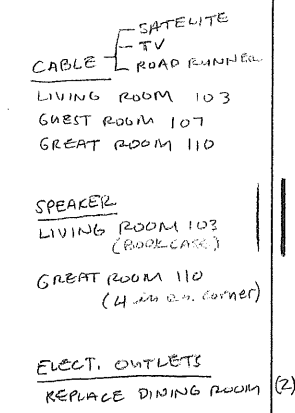 SATELITE
TV
CABLE ROAD RUNNER
LIVING ROOM 103
GUEST ROOM 107
GREAT ROOM 110
SPEAKER
LIVING ROOM 103
(BOOKCASE)
GREAT ROOM 110
(4 corner)
ELECT. OUTLETS
REPLACE DINING ROOM (2)